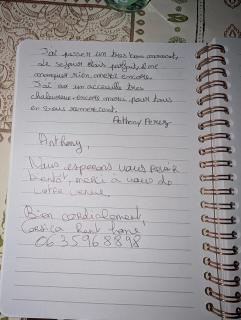 J'ai passer un tres bon moment,
Le sejour étais parfait, il ne
manquait rien, merci encore.
J'ai eu un accueille tres
chaleureux. encore merci pour tous
en vous remerciant.
Anthony Perez
Anthony,
Nous esperons vous revoir
bientôt, merci à vous de
votre venue.
Bien cordialement,
Corsica Rent home
0635968898